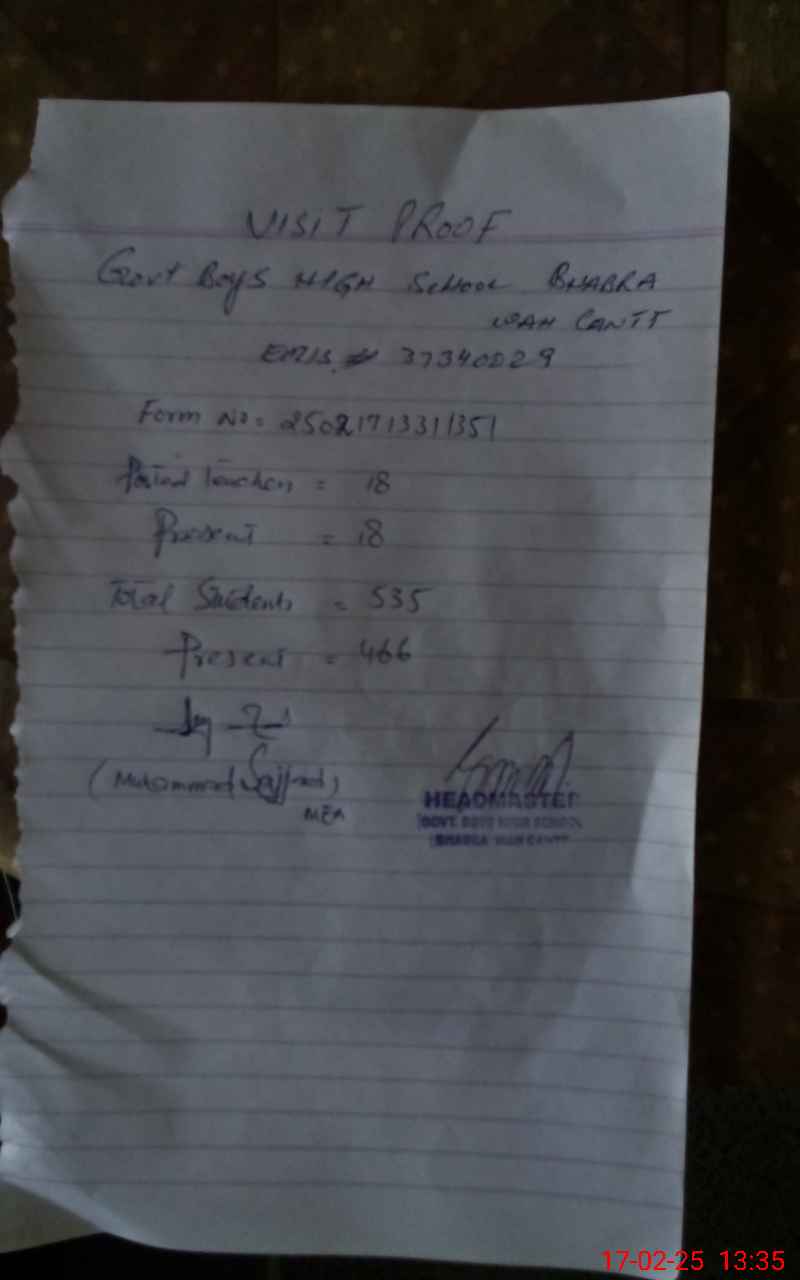 VISIT PROOF
Govt Boys HIGH School BHABRA
WAH CANTT
EMIS # 37340029
Form No = 25021713311351
Teachers = 18
Present = 18
Total Students = 535
Present = 466
(Muhammad Sajjad)
MEA
HEADMASTER
GOVT. BOYS HIGH SCHOOL
BHABRA WAH CANTT
17-02-25 13:35